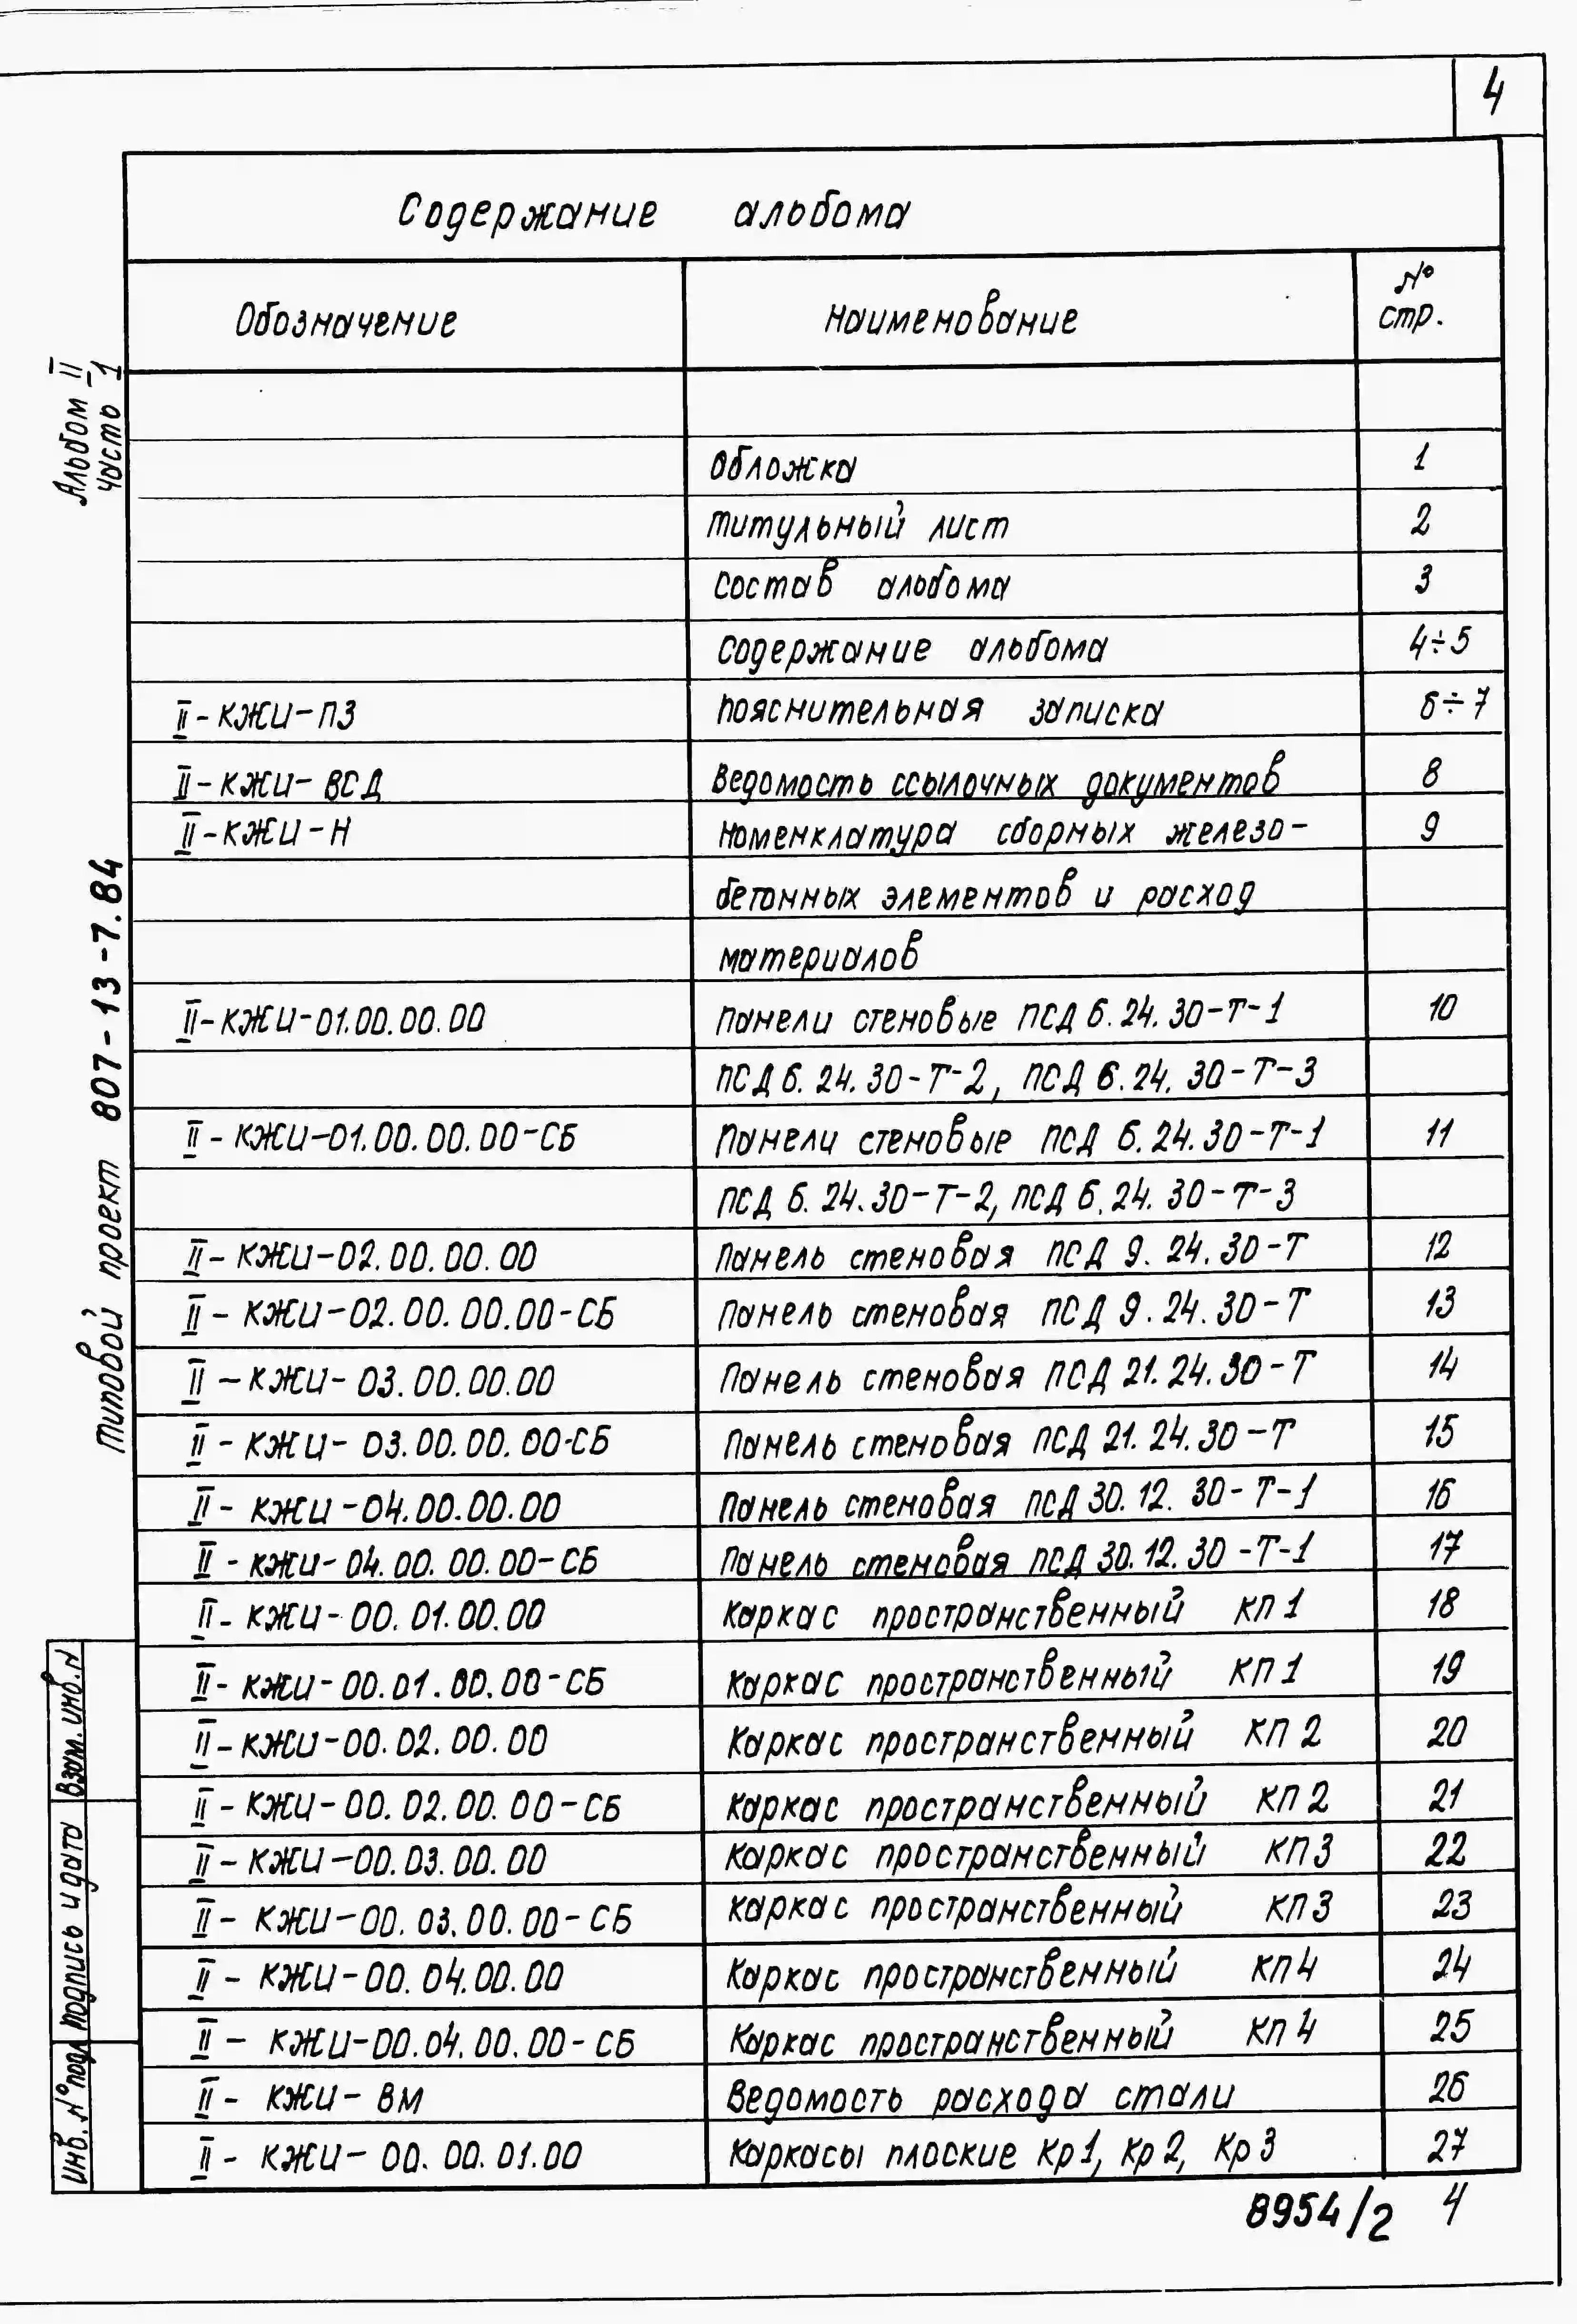 4
Содержание альбома
Обозначение Наименование № стр.
Обложка 1
Титульный лист 2
Состав альбома 3
Содержание альбома 4÷5
II-КЖИ-ПЗ Пояснительная записка 6÷7
II-КЖИ-ВСД Ведомость ссылочных документов 8
II-КЖИ-Н Номенклатура сборных железо- 9
бетонных элементов и расход
материалов
II-КЖИ-01.00.00.00 Панели стеновые ПСД 6.24.30-Т-1 10
ПСД 6.24.30-Т-2, ПСД 6.24.30-Т-3
II-КЖИ-01.00.00.00-СБ Панели стеновые ПСД 6.24.30-Т-1 11
ПСД 6.24.30-Т-2, ПСД 6.24.30-Т-3
II-КЖИ-02.00.00.00 Панель стеновая ПСД 9.24.30-Т 12
II-КЖИ-02.00.00.00-СБ Панель стеновая ПСД 9.24.30-Т 13
II-КЖИ-03.00.00.00 Панель стеновая ПСД 21.24.30-Т 14
II-КЖИ-03.00.00.00-СБ Панель стеновая ПСД 21.24.30-Т 15
II-КЖИ-04.00.00.00 Панель стеновая ПСД 30.12.30-Т-1 16
II-КЖИ-04.00.00.00-СБ Панель стеновая ПСД 30.12.30-Т-1 17
II-КЖИ-00.01.00.00 Каркас пространственный КП1 18
II-КЖИ-00.01.00.00-СБ Каркас пространственный КП1 19
II-КЖИ-00.02.00.00 Каркас пространственный КП2 20
II-КЖИ-00.02.00.00-СБ Каркас пространственный КП2 21
II-КЖИ-00.03.00.00 Каркас пространственный КП3 22
II-КЖИ-00.03.00.00-СБ Каркас пространственный КП3 23
II-КЖИ-00.04.00.00 Каркас пространственный КП4 24
II-КЖИ-00.04.00.00-СБ Каркас пространственный КП4 25
II-КЖИ-ВМ Ведомость расхода стали 26
II-КЖИ-00.00.01.00 Каркасы плоские Кр1, Кр2, Кр3 27
8954/2 4
Альбом II
часть 1
Типовой проект 807-13-7.84
Взам. инв. N
Подпись и дата
Инв. N° подл